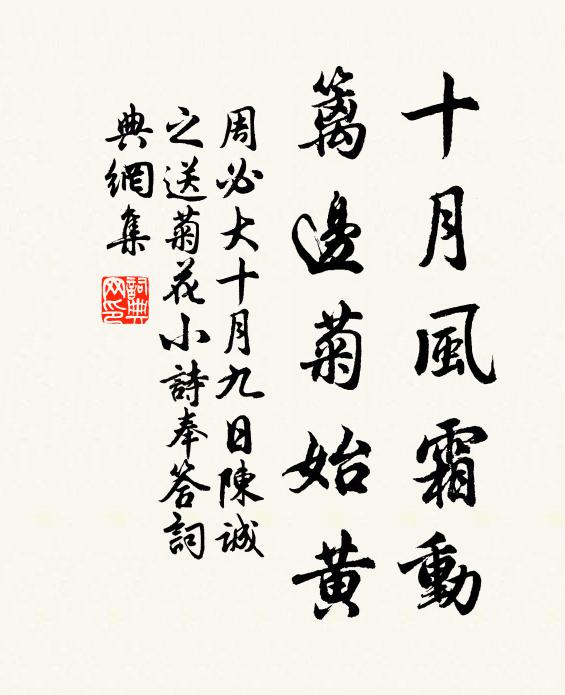 十月風霜動
籬邊菊始黃
周必大十月九日陳誠
之送菊花小詩奉答詞
典網集
詞典
网印